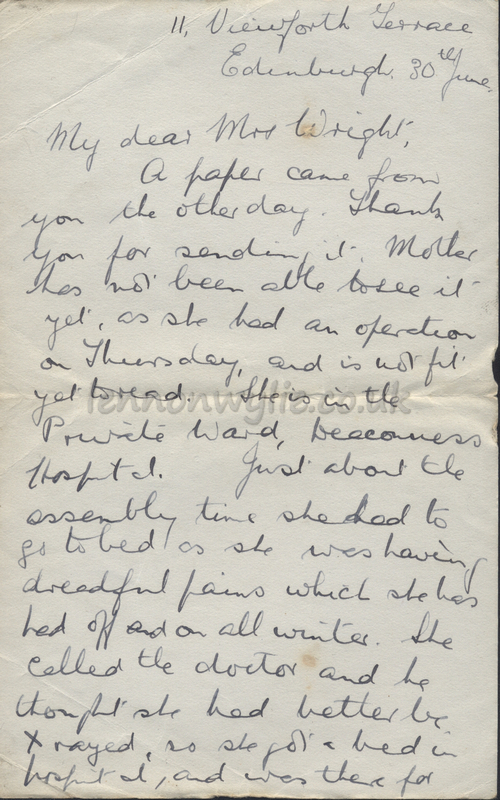 11, Viewforth Terrace
Edinburgh. 30th June.
My dear Mrs Wright,
A paper came from
you the other day. Thank
you for sending it. Mother
has not been able to see it
yet, as she had an operation
on Thursday, and is not fit
yet to read. She is in the
lennonwylie.co.uk
Private Ward, Deaconess
Hospital. Just about the
assembly time she had to
go to bed as she was having
dreadful pains which she has
had off and on all winter. She
called the doctor and he
thought she had better be
X rayed, so she got a bed in
hospital, and was there for